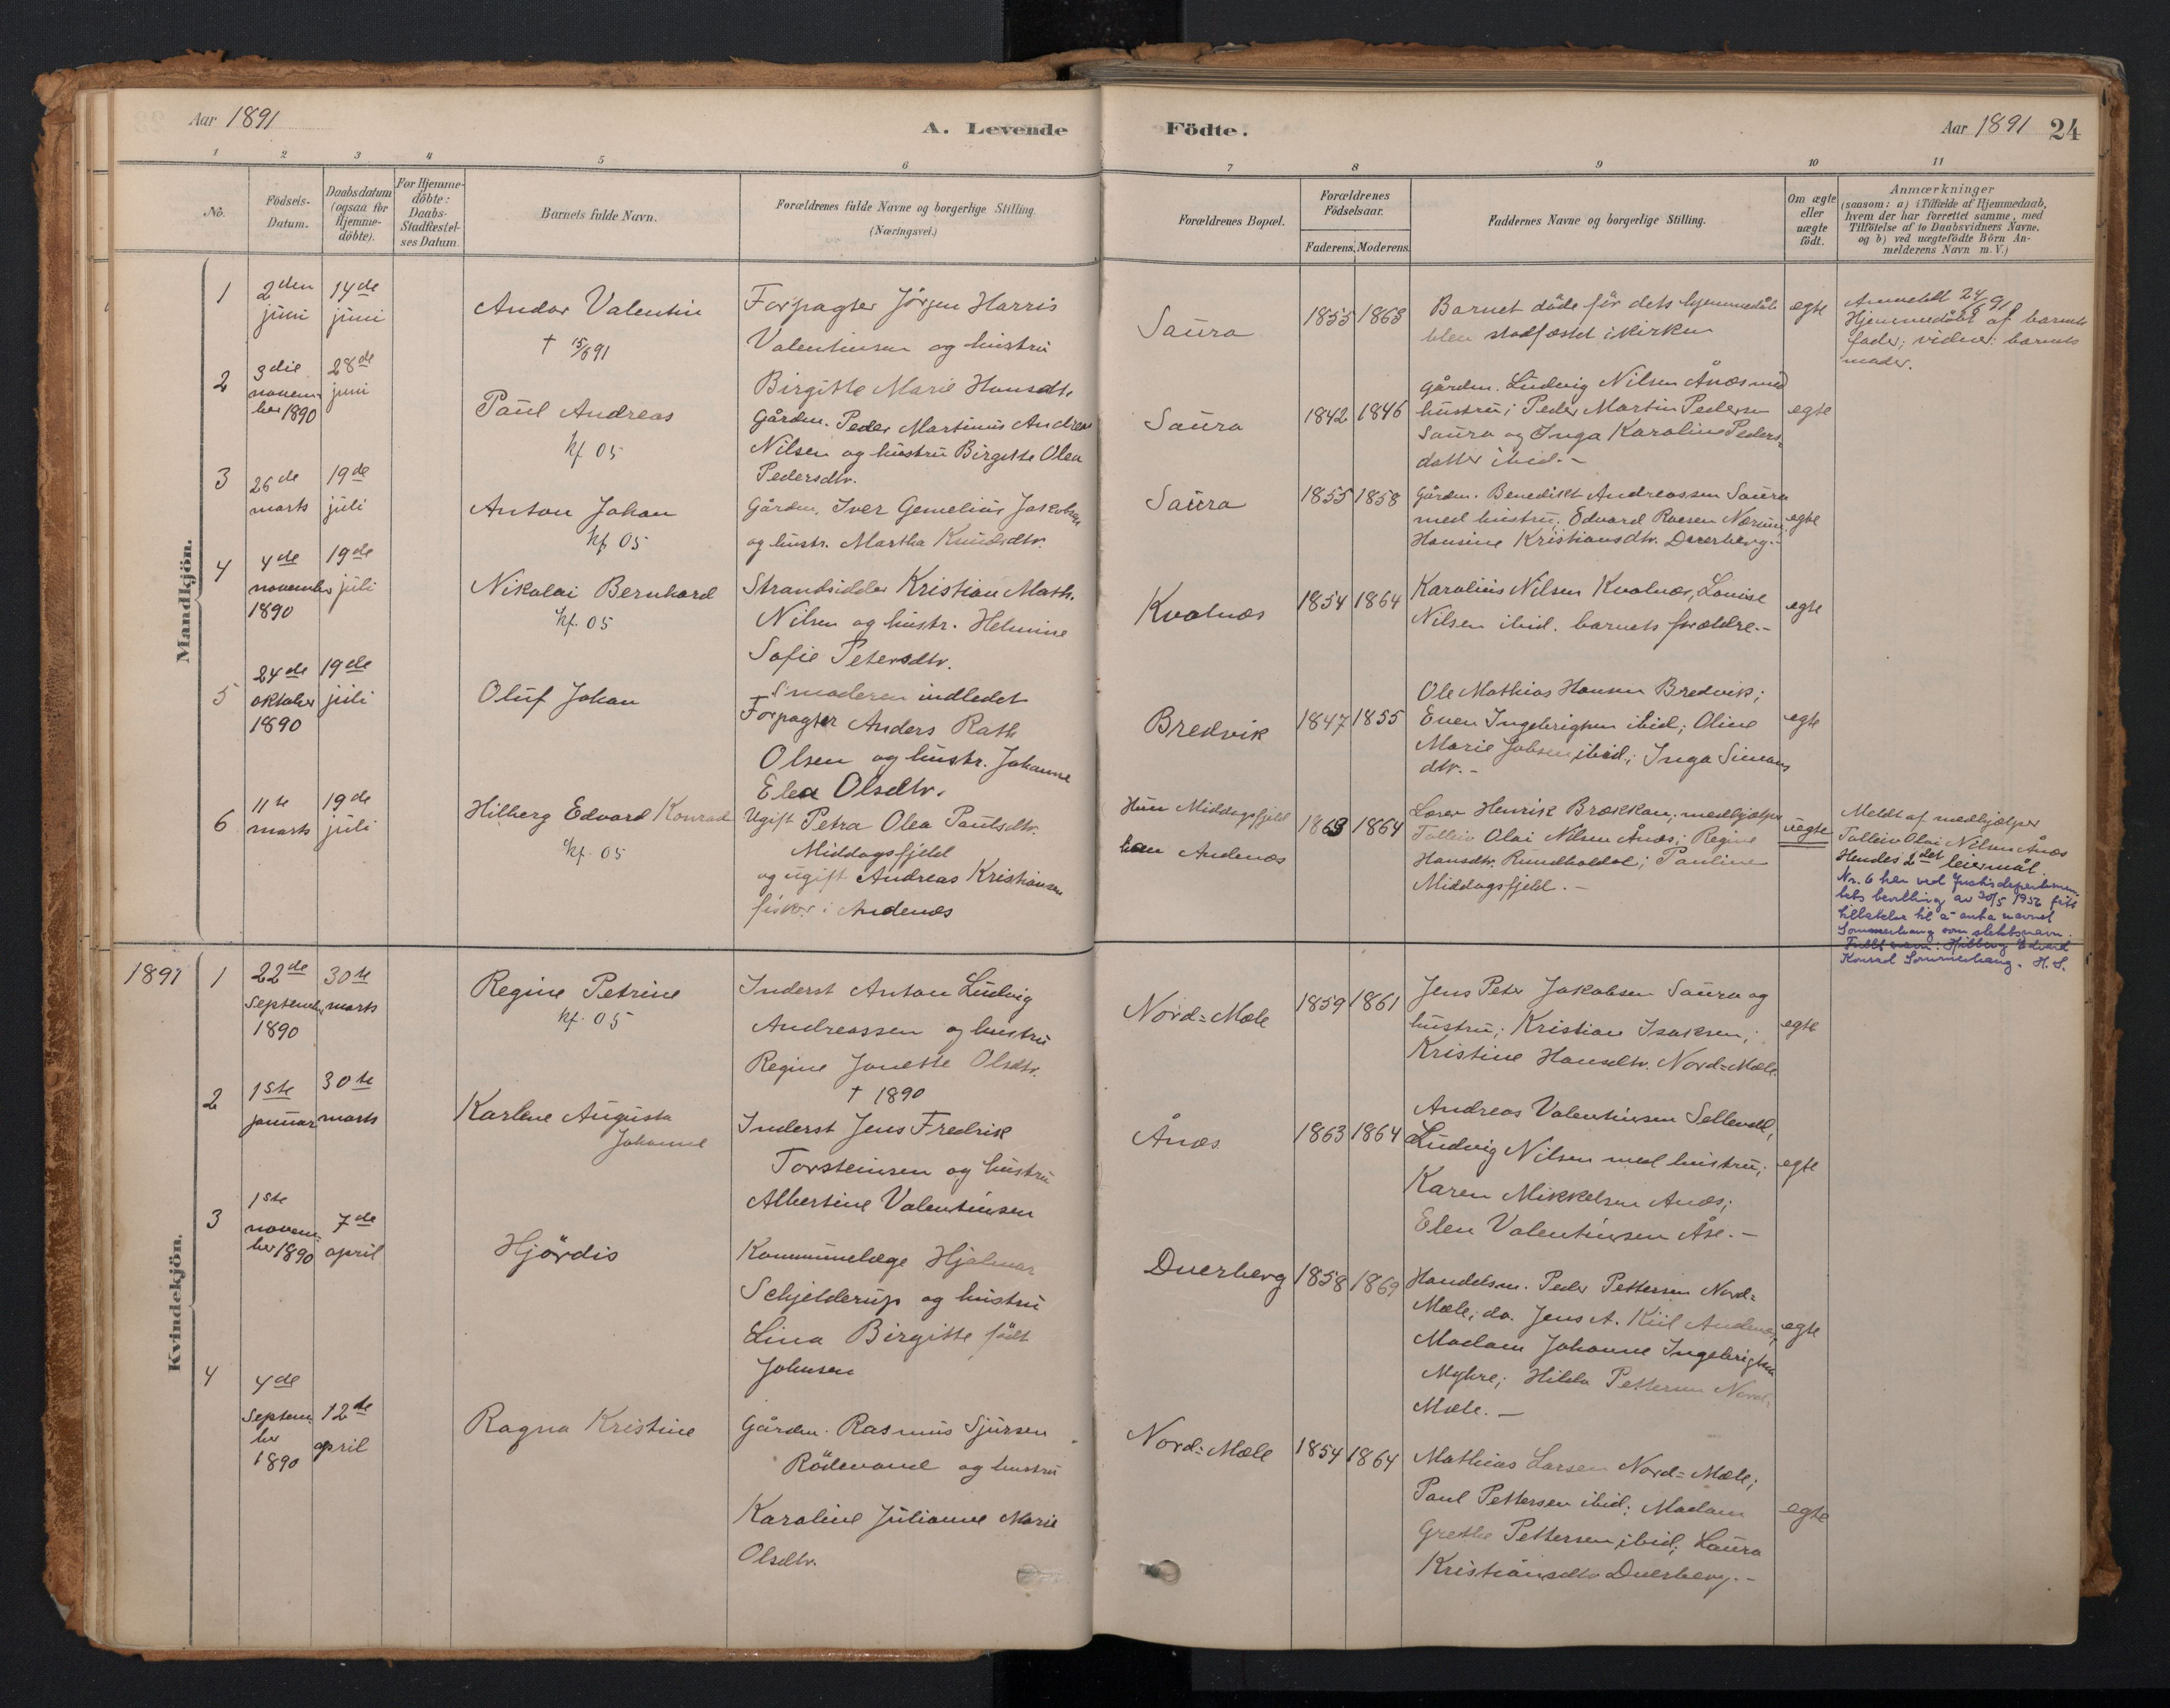 Aar 1891
A. Levende
Födte.
Aar 1891
24
1 2 3 4 5 6 7 8 9 10 11
No.
Födsels-
Datum.
Daabsdatum
(ogsaa for
Hjemme-
döbte).
For Hjemme-
döbte:
Daabs-
Stadfæstel-
ses Datum.
Barnets fulde Navn.
Forældrenes fulde Navne og borgerlige Stilling.
(Næringsvei.)
Forældrenes Bopæl.
Forældrenes
Födselsaar.
Faderens. Moderens.
Faddernes Navne og borgerlige Stilling.
Om ægte
eller
uægte
födt.
Anmærkninger
(saasom: a) i Tilfælde af Hjemmedaab,
hvem der har forrettet samme, med
Tilföielse af to Daabsvidners Navne.
og b) ved uægtefödte Börn An-
melderens Navn m. V.)
Mandkjön.
1
2den
juni
14de
juni
Andor Valentin
† 15/6 91
Forpagter Jörgen Harris
Valentinsen og hustru
Birgitte Marie Hansdtr.
Saura
1855 1863
Barnet döde för dets hjemmedåb
blev stadfæstet i kirken
egte
Anmeldt 24/6 91
Hjemmedöbt af barnets
fader; vidner: barnets
moder.
2
3die
novem-
ber 1890
28de
juni
Paul Andreas
kf. 05
Gårdm. Peder Martinus Andreas
Nilsen og hustru Birgitte Olea
Pedersdtr.
Saura
1842 1846
Gårdm. Ludvig Nilsen Ånæs med
hustru; Peder Martin Pedersen
Saura og Inga Karoline Peders-
datter ibid.-
egte
3
26de
marts
19de
juli
Anton Johan
kf. 05
Gårdm. Iver Gemelius Jakobsen
og hustr. Martha Knudsdtr.
Saura
1855 1858
Gårdm. Benedikt Andreassen Saura
med hustru; Edvard Roesen Nærum;
Hansine Kristiansdtr. Dverberg.-
egte
4
4de
november
1890
19de
juli
Nikolai Bernhard
kf. 05
Strandsidder Kristian Math.
Nilsen og hustr. Helmine
Sofie Petersdtr.
Kvalnæs
1854 1864
Karolius Nilsen Kvalnæs, Louise
Nilsen ibid. barnets forældre.-
egte
5
24de
oktober
1890
19de
juli
Oluf Johan
moderen indledet
Forpagter Anders Rath
Olsen og hustr. Johanne
Elea Olsdtr.
Bredvik
1847 1855
Ole Mathias Hansen Bredvik;
Even Ingebrigtsen ibid; Oline
Marie Jobsen ibid.; Inga Simons
dtr.-
egte
6
11te
marts
19de
juli
Hilberg Edvard Konrad
kf. 05
Ugift Petra Olea Paulsdtr.
Middagsfjeld
og ugift Andreas Kristiansen
fisker i Andenæs
Hun Middagsfjeld
han Andenæs
1863 1864
Lærer Henrik Brækkan; medhjælper
Tolleiv Olai Nilsen Ånæs; Regine
Hansdtr. Rundholdal; Pauline
Middagsfjeld.-
uegte
Meldt af medhjælper
Tolleiv Olai Nilsen Ånæs
Hendes 2det leiermål.
Nr. 6 har ved Justisdepartemen-
tets bevilling av 30/5 1956 fått
tillatelse til å anta navnet
Sommerhaug som slektsnavn.
Fullt navn: Hilberg Edvard
Konrad Sommerhaug. H. S.
1891
Kvindekjön.
1
22de
september
1890
30te
marts
Regine Petrine
kf. 05
Inderst Anton Ludvig
Andreassen og hustru
Regine Janette Olsdtr.
† 1890
Nord-Mæle
1859 1861
Jens Peter Jakobsen Saura og
hustru; Kristian Isaksen;
Kristine Hansdtr. Nord-Mæle.
egte
2
1ste
januar
30te
marts
Karlene Augusta
Johanne
Inderst Jens Fredrik
Torsteinsen og hustru
Albertine Valentinsen
Ånæs
1863 1864
Andreas Valentinsen Sellevoll,
Ludvig Nilsen med hustru;
Karen Mikkelsen Anæs;
Elen Valentinsen Åse.-
egte
3
1ste
novem-
ber 1890
7de
april
Hjördis
Kommunelæge Hjalmar
Schjelderup og hustru
Lina Birgitte födt
Johnsen
Dverberg
1858 1869
Handelsm. Peder Pettersen Nord-
Mæle; do. Jens A. Kiil Andenæs;
Madam Johanne Ingebrigtsen
Myhre; Hilda Pettersen Nord-
Mæle.-
egte
4
4de
septem
ber
1890
12te
april
Ragna Kristine
Gårdm. Rasmus Sjursen
Rödevand og hustru
Karoline Julianne Marie
Olsdtr.
Nord-Mæle
1854 1864
Mathias Larsen Nord-Mæle;
Paul Pettersen ibid; Madam
Grethe Pettersen ibid; Laura
Kristiansdtr Dverberg.-
egte